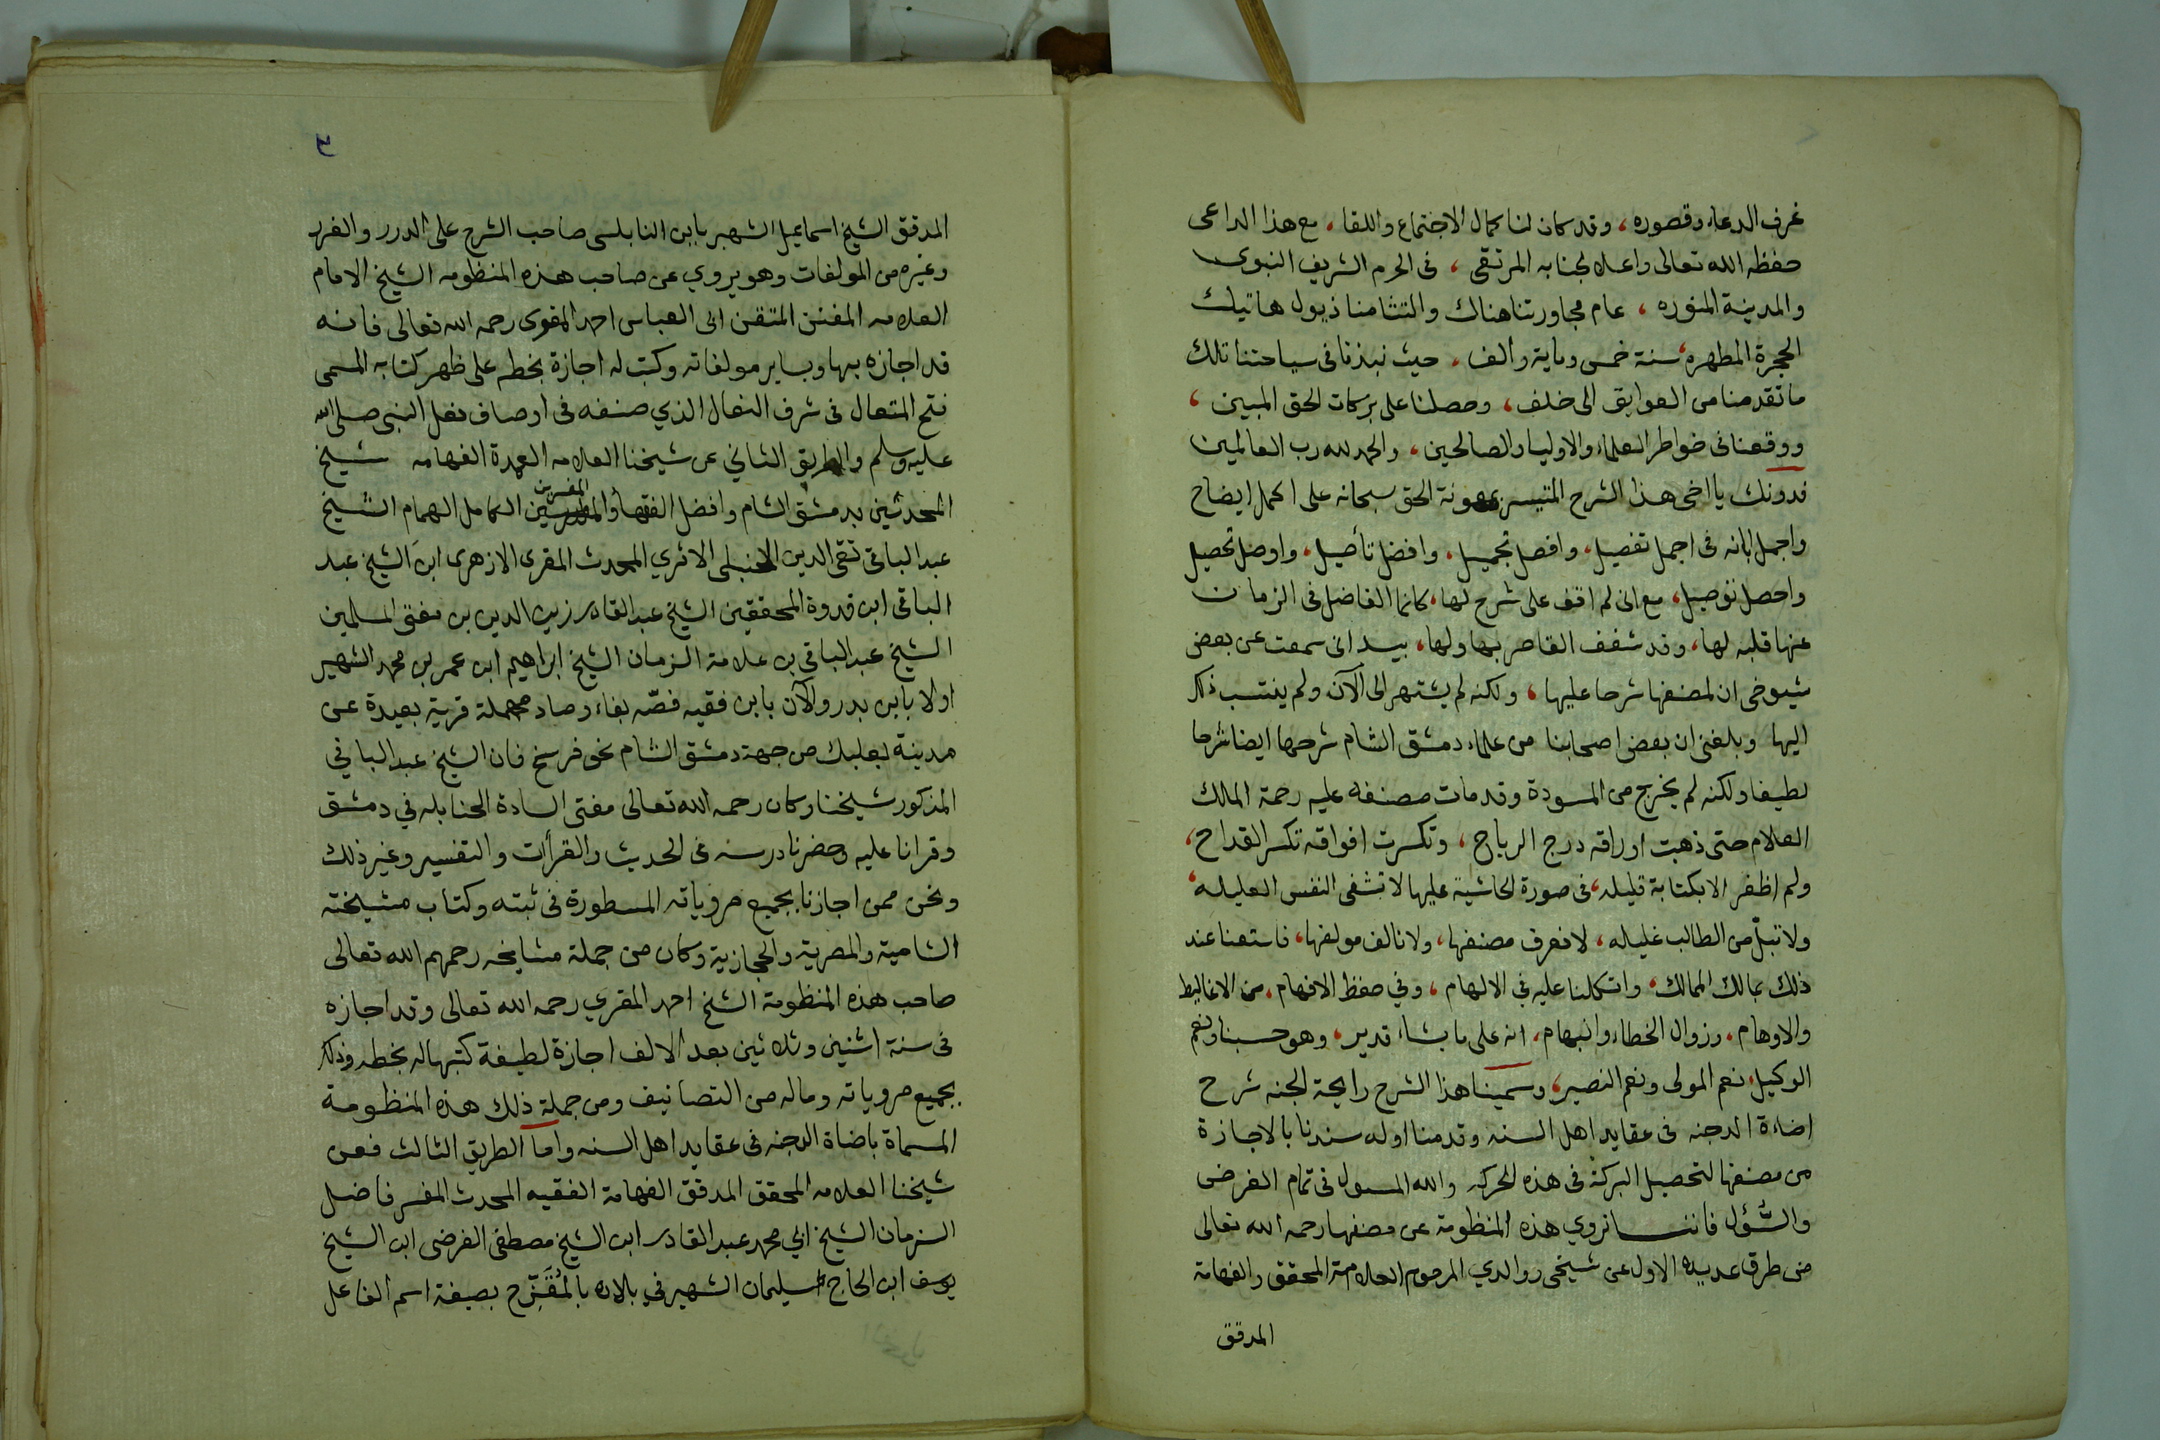 غرف الدعاء وقصوره، وقد كان لنا كمال الاجتماع واللقا، مع هذا الداعى
حفظه الله تعالى واعلا لجنابه المرتقى، فى الحرم الشريف النبوى
والمدينة المنوره، عام مجاورتنا هناك والتثامنا ذيول هاتيك
الحجرة المطهره، سنة خمس وماية والف، حيث نبذنا فى سياحتنا تلك
ما تقدمنا من العوايق الى خلف، وحصلنا على بركات الحق المبين،
ووقعنا فى خواطر العلماء والاولياء والصالحين، والحمد لله رب العالمين
فدونك يا اخى هذا الشرح المتيسر بمعونة الحق سبحانه على اكمل ايضاح
واجمل ابانه فى اجمل تفصيل، وافصل تجميل، وافضل تأصيل، واوصل تحصيل
واحصل توصيل، مع انى لم اقف على شرح لها، كانما الفاضل فى الزمان
عنها قلبه لها، وقد شغف القاصر بها ولها، بيد انى سمعت عن بعض
شيوخى ان لمصنفها شرحا عليها، ولكنه لم يشتهر الى الآن ولم ينتسب ذلك
اليها وبلغنى ان بعض اصحابنا من علماء دمشق الشام شرحها ايضا شرحا
لطيفا ولكنه لم يخرج من المسودة وقد مات مصنفه عليه رحمة المالك
العلام حتى ذهبت اوراقه درج الرياح، وتكسرت افواقه تكسر القداح،
ولم اظفر الا بكتابة قليله، فى صورة الحاشية عليها لا تشفى النفس العليله،
ولا تبلّ من الطالب غليله، لا نعرف مصنفها، ولا نالف مولفها، فاستعنا عند
ذلك بمالك الممالك، واتكلنا عليه في الالهام، وفي حفظ الافهام، من الاغاليط
والاوهام، وزوال الخطاء وانبهام، انه على ما يشاء قدير، وهو حسبنا ونعم
الوكيل، نعم المولى ونعم النصير، وسمينا هذا الشرح رايحة الجنه شرح
اضاءة الدجنه فى عقايد اهل السنه وقدمنا اوله سندنا بالاجازة
من مصنفها لتحصيل البركة فى هذه الحركه والله المسول فى تمام الغرض
والسُّؤل فاننـا نروي هذه المنظومة عن مصنفها رحمه الله تعالى
من طرق عديده الاول عن شيخى ووالدي المرحوم العلامة المحقق والفهامة
المدقق
٣
المدقق الشيخ اسماعيل الشهير بابن النابلسى صاحب الشرح على الدرر والغرر
وغيره من المولفات وهو يروي عن صاحب هذه المنظومه الشيخ الامام
العلامه المفنن المتقن ابى العباس احمد المقرى رحمه الله تعالى فانه
قد اجازه بها وبساير مولفاته وكتب له اجازة بخطه على ظهر كتابه المسمى
فتح المتعال فى شرف النعال الذي صنفه فى اوصاف نعل النبى صلى الله
عليه وسلم والطريق الثاني عن شيخنا العلامه العمدة الفهامه شيخ
المحدثين بدمشق الشام وافضل الفقهاء والمفسرين الكامل الهمام الشيخ
عبد الباقى تقى الدين الحنبلى الاثري المحدث المقرى الازهرى ابن الشيخ عبد
الباقى ابن قدوة المحققين الشيخ عبد القادر زين الدين بن مفتى المسلمين
الشيخ عبد الباقي بن علامة الزمان الشيخ ابراهيم ابن عمر بن محمد الشهير
اولا بابن بدر والآن بابن فقيه فصّه بفاء وصاد مهملة قرية بعيدة عن
مدينة بعلبك من جهة دمشق الشام نحو فرسخ فان الشيخ عبد الباقي
المذكور شيخنا وكان رحمه الله تعالى مفتى السادة الحنابله في دمشق
وقرانا عليه وحضرنا درسه فى الحديث والقرأات والتفسير وغير ذلك
ونحن ممن اجازنا بجميع مروياته المسطورة فى ثبته وكتاب مشيخته
الشامية والمصرية والحجازية وكان من جملة مشايخه رحمهم الله تعالى
صاحب هذه المنظومة الشيخ احمد المقري رحمه الله تعالى وقد اجازه
فى سنة اثنين وثلاثين بعد الالف اجازة لطيفة كتبها له بخطه وذلك
بجميع مروياته وماله من التصانيف ومن جملة ذلك هذه المنظومة
المسماة باضاة الدجنه فى عقايد اهل السنه واما الطريق الثالث فعن
شيخنا العلامه المحقق المدقق الفهامة الفقيه المحدث المفسر فاضل
الزمان الشيخ ابي محمد عبد القادر ابن الشيخ مصطفى الفرضى ابن الشيخ
يوسف ابن الحاج سليمان الشهير في بلاده بالمُقَتِّرح بصيغة اسم الفاعل